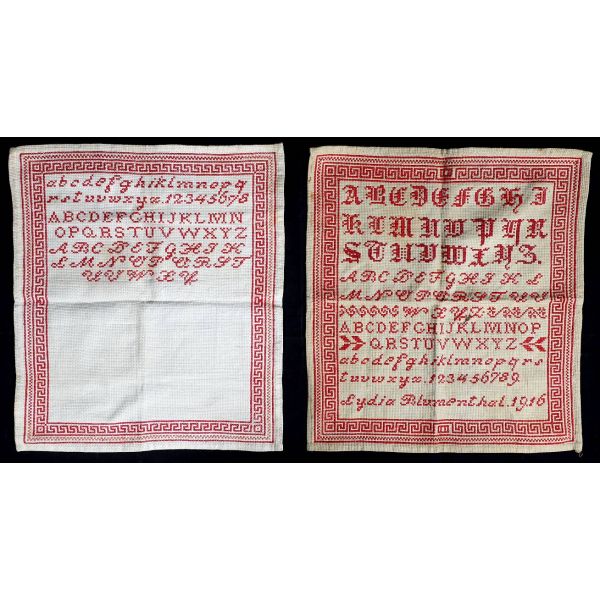 abcdefghiklmnopq
rstuvwxyz.12345678
ABCDEFGHIJKLMN
OPQRSTUVWXYZ
ABCDEFGHIK
LMNOPQRST
UVWXY
ABCDEFGHI
KLMNOPQR
STUVWXYZ.
ABCDEFGHIKL
MNOPQRSTUV
WXYZ
ABCDEFGHIJKLMNOP
QRSTUVWXYZ
abcdefghiklmnopqrs
tuvwxyz.123456789.
Lydia Blumenthal.1916